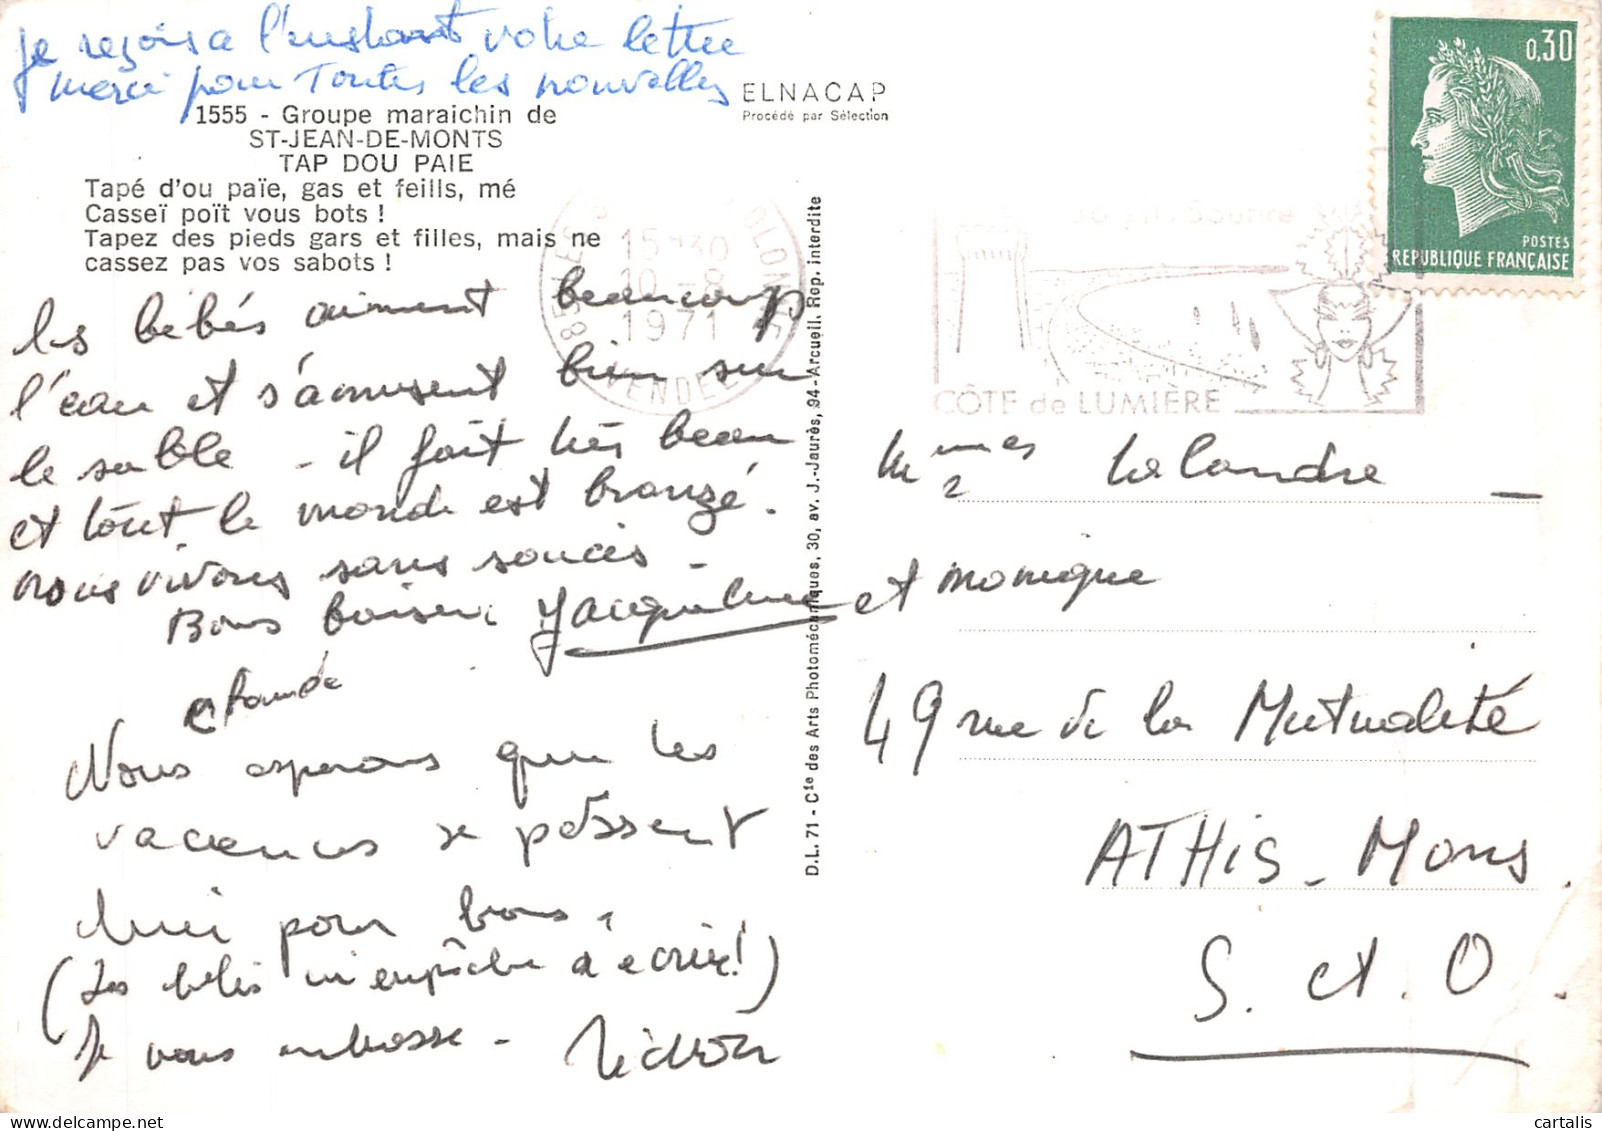 Je reçois a l'instant votre lettre
merci pour Toutes les nouvelles
1555 - Groupe maraichin de
ST-JEAN-DE-MONTS
TAP DOU PAIE
Tapé d'ou païe, gas et feills, mé
Casseï poït vous bots !
Tapez des pieds gars et filles, mais ne
cassez pas vos sabots !
ELNACAP
Procédé par Sélection
les bébés aiment beaucoup
l'eau et s'amusent bien sur
le sable - il fait très beau
et tout le monde est bronzé.
nous vivons sans soucis -
Bons baisers Jacqueline
Claude
Nous esperons que les
vacances se passent
bien pour vous.
(Les bébés m'empêche d'écrire!)
Je vous embrasse -
D.L. 71 - Cie des Arts Photomécaniques, 30, av. J.-Jaurès, 94 - Arcueil. Rep. interdite
15 H30
10 - 8
1971
VENDEE
CÔTE de LUMIÈRE
0,30
POSTES
REPUBLIQUE FRANÇAISE
Mmes Lalandre
2
et monique
49 rue de la Mutualité
ATHis - Mons.
S. et. O.
cartalis
www.delcampe.net